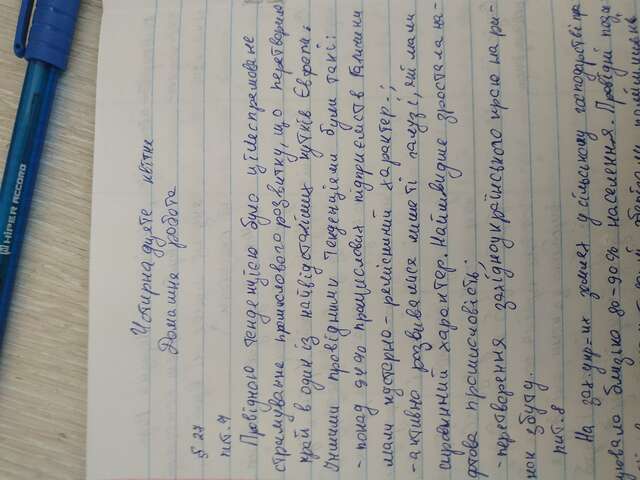 HIPER ACCORD
Чотирнадцяте квітня
Домашня робота
§ 27
пит. 7
Провідною тенденцією було цілеспрямоване
стримування промислового розвитку, що перетворив
край в один із найвідсталіших кутків Європи.
Іншими провідними тенденціями були такі:
- понад 94% промислових підприємств Галичини
мали кустарно-ремісничий характер;
- активно розвивалися лише ті галузі, які мали
сировинний характер. Найшвидше зростала на-
фтова промисловість;
- перетворення західноукраїнського краю на ри-
нок збуту.
пит. 8
На зах. укр-их землях у сільському господарстві пра
цювало близько 80-90% населення. Провідні